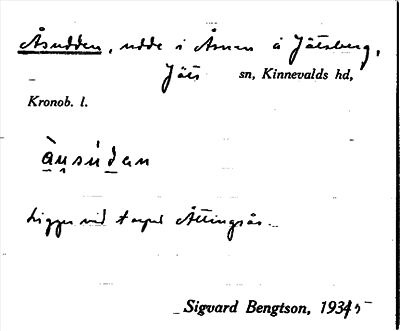 Åsudden, udde i Åsnen å Jätsberg,
Jäts sn, Kinnevalds hd,
Kronob. l.
àu̯súdan
Ligger vid torpet Ättingsås.
Sigvard Bengtson, 1934